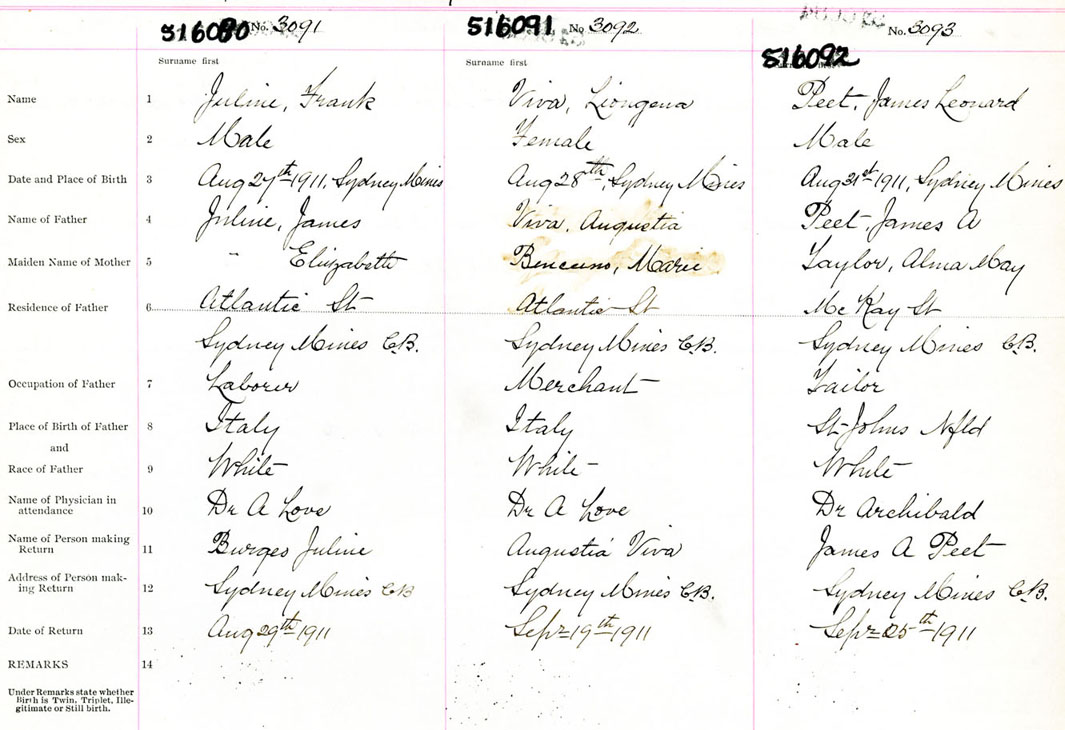 516090 No. 3091 516091 No 3092 No. 3093
516092
Surname first Surname first
Name 1 Juline, Frank Viva, Liongena Peet, James Leonard
Sex 2 Male Female Male
Date and Place of Birth 3 Aug 27th 1911, Sydney Mines Aug 28th, Sydney Mines Aug 31st 1911, Sydney Mines
Name of Father 4 Juline, James Viva, Augustia Peet, James A
Maiden Name of Mother 5 " Elizabeth Bencuno, Marie Taylor, Alma May
Residence of Father 6 Atlantic St Atlantic St Mc Kay St
Sydney Mines C.B. Sydney Mines C.B. Sydney Mines C.B.
Occupation of Father 7 Laborer Merchant Tailor
Place of Birth of Father 8 Italy Italy St Johns Nfld
and
Race of Father 9 White White White
Name of Physician in
attendance 10 Dr A Love Dr A Love Dr Archibald
Name of Person making
Return 11 Burges Juline Augustia Viva James A Peet
Address of Person mak-
ing Return 12 Sydney Mines CB Sydney Mines C.B. Sydney Mines C.B.
Date of Return 13 Aug 29th 1911 Sept 19th 1911 Sept 25th 1911
REMARKS 14
Under Remarks state whether
Birth is Twin, Triplet, Ille-
gitimate or Still birth.